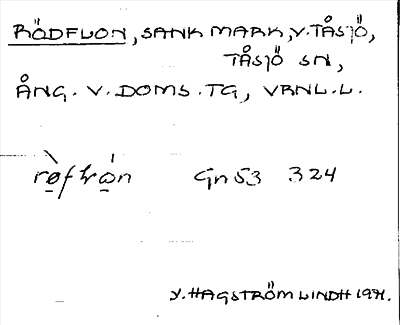 RÖDFLON, SANK MARK, V. TÅSJÖ,
TÅSJÖ SN,
ÅNG. V. DOMS. TG, VRNL. L.
Gn53 324
Y. HAGSTRÖM LINDH 1971.